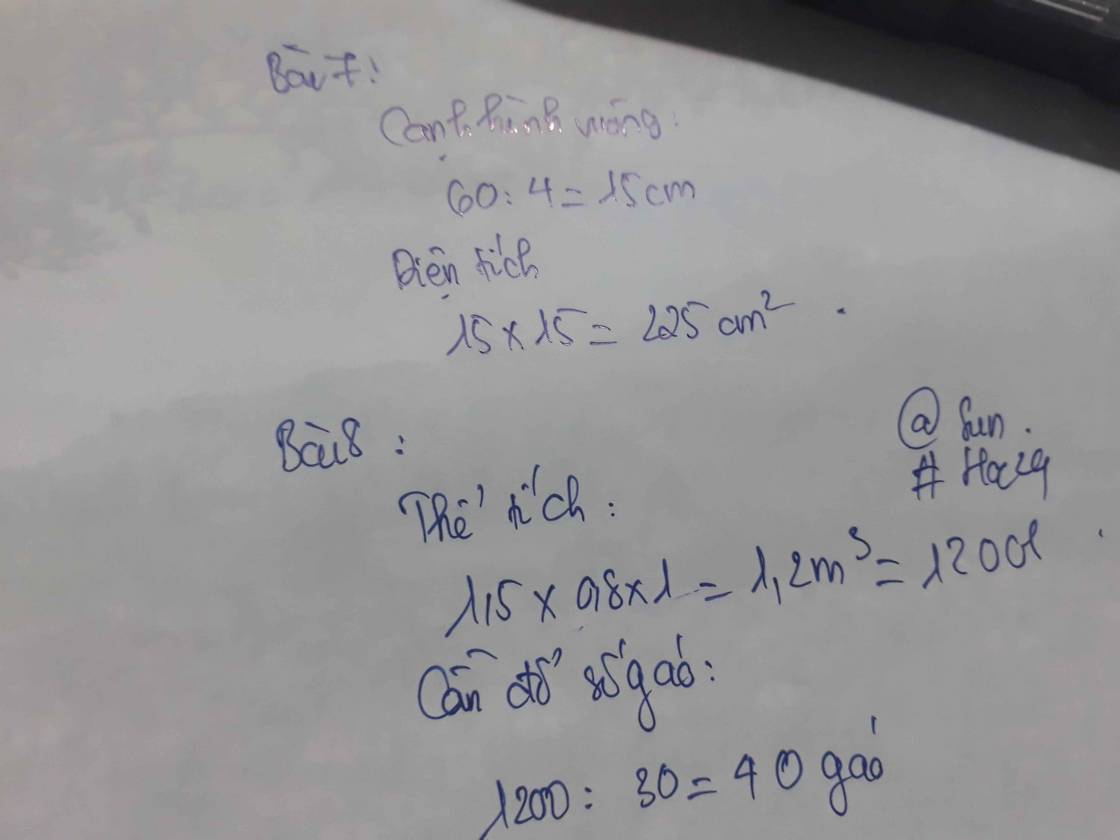 Bài 7:
Cạnh hình vuông:
60 : 4 = 15 cm
Diện tích
15 x 15 = 225 cm²
Bài 8 :
@ Sun.
# Hoc24
Thể tích :
1,5 x 0,8 x 1 = 1,2 m³ = 1200l
Cần đổ số gáo :
1200 : 30 = 40 gáo